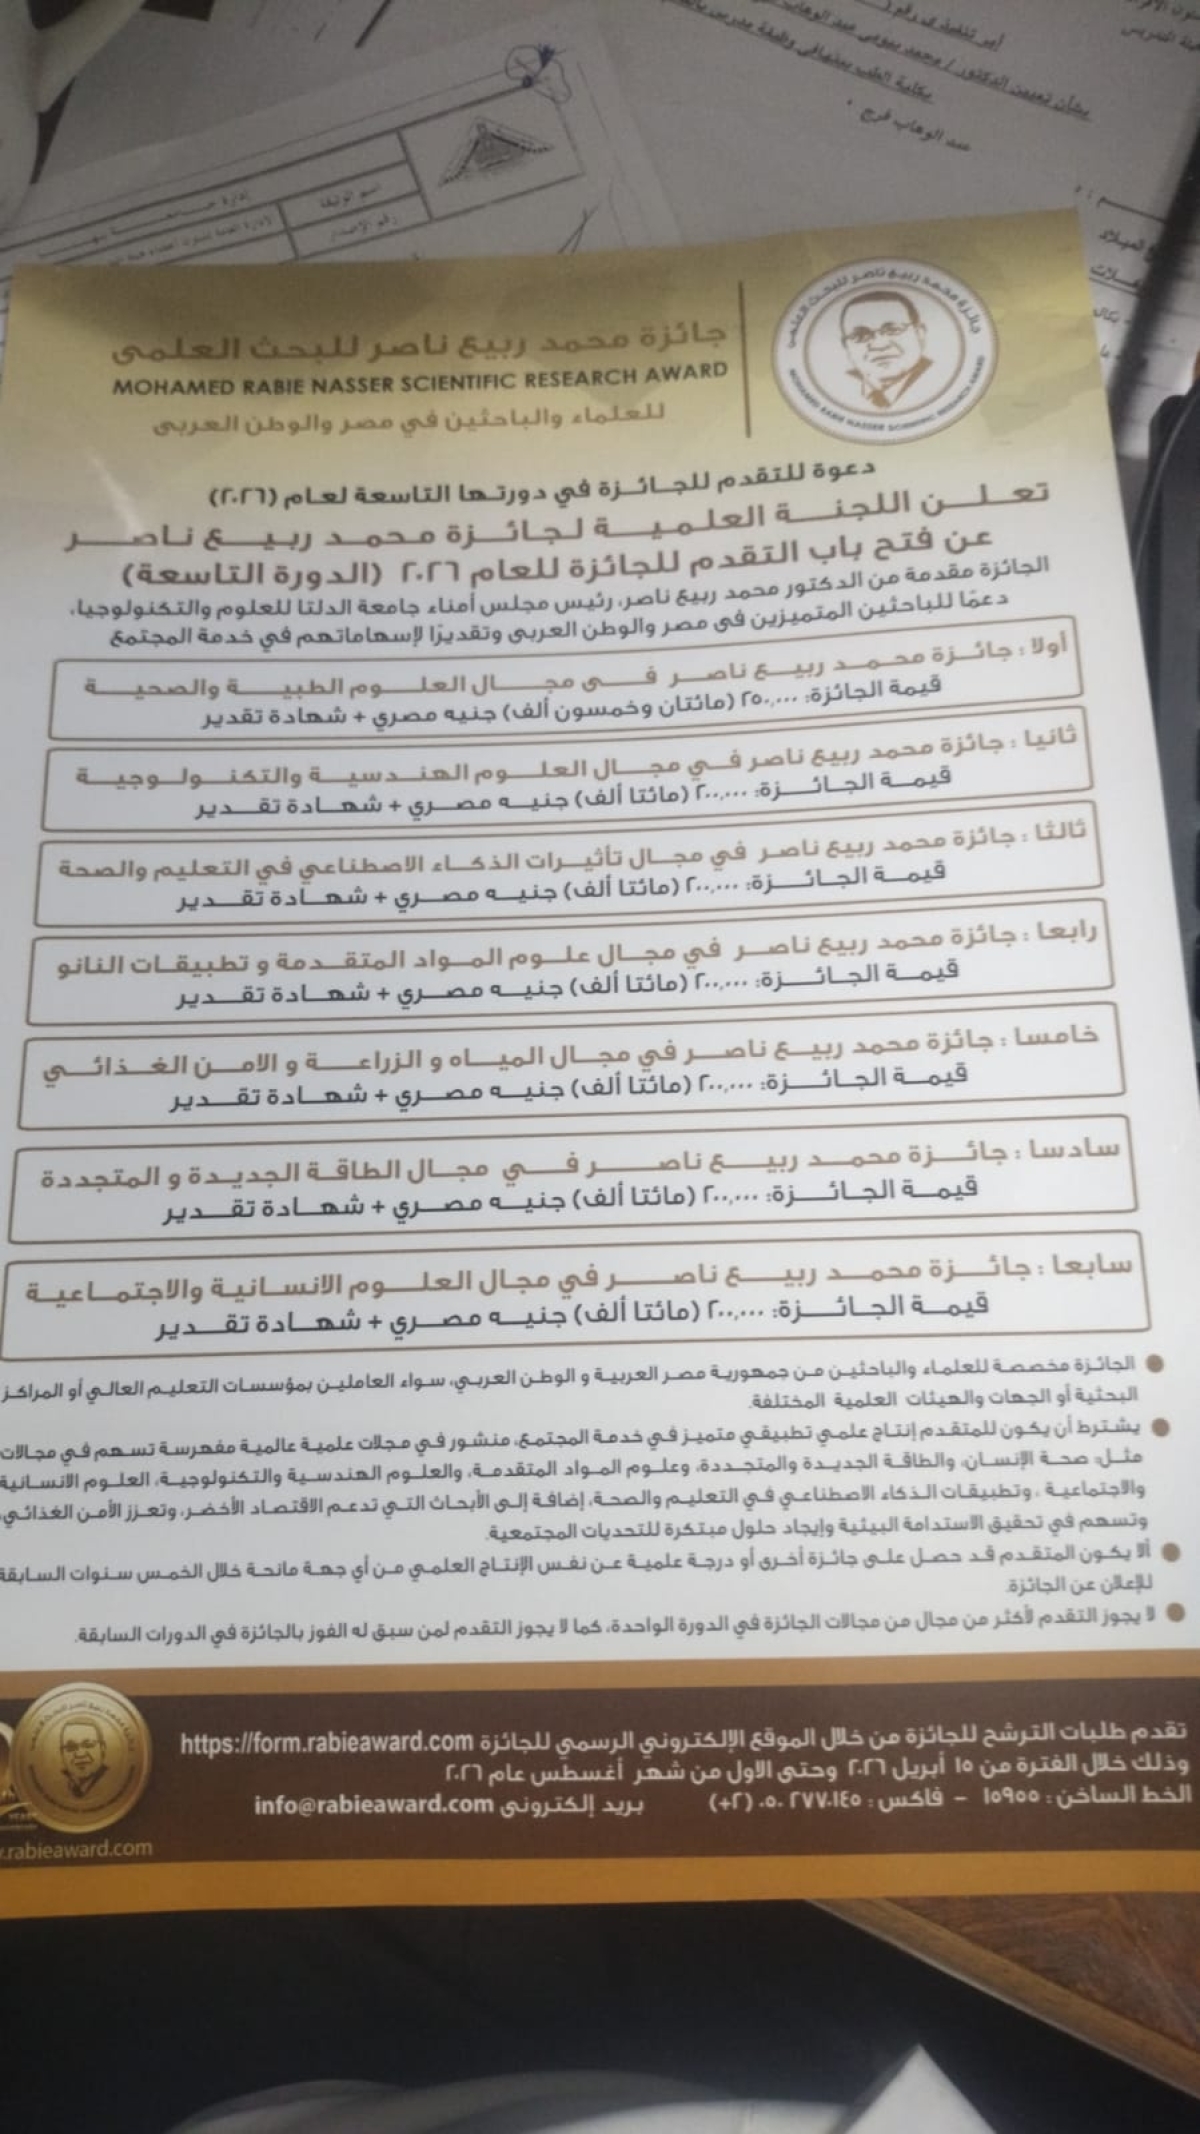 أمر تنفيذي رقم
بشأن تعيين الدكتور / محمد بيومي عبد الوهاب
بكلية الطب
وظيفة مدرس
عبد الوهاب فرج
اسم الوثيقة
رقم الإصدار
جائزة محمد ربيع ناصر للبحث العلمى
MOHAMED RABIE NASSER SCIENTIFIC RESEARCH AWARD
للعلماء والباحثين في مصر والوطن العربى
جائزة محمد ربيع ناصر للبحث العلمى
MOHAMED RABIE NASSER SCIENTIFIC RESEARCH AWARD
دعوة للتقدم للجائزة في دورتها التاسعة لعام (٢٠٢٦)
تعلن اللجنة العلمية لجائزة محمد ربيع ناصر
عن فتح باب التقدم للجائزة للعام ٢٠٢٦ (الدورة التاسعة)
الجائزة مقدمة من الدكتور محمد ربيع ناصر، رئيس مجلس أمناء جامعة الدلتا للعلوم والتكنولوجيا،
دعمًا للباحثين المتميزين فى مصر والوطن العربى وتقديرًا لإسهاماتهم في خدمة المجتمع
أولا : جائزة محمد ربيع ناصر فى مجال العلوم الطبية والصحية
قيمة الجائزة: ٢٥٠,٠٠٠ (مائتان وخمسون ألف) جنيه مصري + شهادة تقدير
ثانيا : جائزة محمد ربيع ناصر في مجال العلوم الهندسية والتكنولوجية
قيمة الجائزة: ٢٠٠,٠٠٠ (مائتا ألف) جنيه مصري + شهادة تقدير
ثالثا : جائزة محمد ربيع ناصر في مجال تأثيرات الذكاء الاصطناعي في التعليم والصحة
قيمة الجائزة: ٢٠٠,٠٠٠ (مائتا ألف) جنيه مصري + شهادة تقدير
رابعا : جائزة محمد ربيع ناصر في مجال علوم المواد المتقدمة و تطبيقات النانو
قيمة الجائزة: ٢٠٠,٠٠٠ (مائتا ألف) جنيه مصري + شهادة تقدير
خامسا : جائزة محمد ربيع ناصر في مجال المياه و الزراعة و الامن الغذائي
قيمة الجائزة: ٢٠٠,٠٠٠ (مائتا ألف) جنيه مصري + شهادة تقدير
سادسا : جائزة محمد ربيع ناصر في مجال الطاقة الجديدة و المتجددة
قيمة الجائزة: ٢٠٠,٠٠٠ (مائتا ألف) جنيه مصري + شهادة تقدير
سابعا : جائزة محمد ربيع ناصر في مجال العلوم الانسانية والاجتماعية
قيمة الجائزة: ٢٠٠,٠٠٠ (مائتا ألف) جنيه مصري + شهادة تقدير
الجائزة مخصصة للعلماء والباحثين من جمهورية مصر العربية و الوطن العربي، سواء العاملين بمؤسسات التعليم العالي أو المراكز
البحثية أو الجهات والهيئات العلمية المختلفة.
يشترط أن يكون للمتقدم إنتاج علمي تطبيقي متميز في خدمة المجتمع، منشور في مجلات علمية عالمية مفهرسة تسهم في مجالات
مثل: صحة الإنسان، والطاقة الجديدة والمتجددة، وعلوم المواد المتقدمة، والعلوم الهندسية والتكنولوجية، العلوم الانسانية
والاجتماعية ، وتطبيقات الذكاء الاصطناعي في التعليم والصحة، إضافة إلى الأبحاث التي تدعم الاقتصاد الأخضر، وتعزز الأمن الغذائي،
وتسهم في تحقيق الاستدامة البيئية وإيجاد حلول مبتكرة للتحديات المجتمعية.
ألا يكون المتقدم قد حصل على جائزة أخرى أو درجة علمية عن نفس الإنتاج العلمي من أي جهة مانحة خلال الخمس سنوات السابقة
للإعلان عن الجائزة.
لا يجوز التقدم لأكثر من مجال من مجالات الجائزة في الدورة الواحدة، كما لا يجوز التقدم لمن سبق له الفوز بالجائزة في الدورات السابقة.
تقدم طلبات الترشح للجائزة من خلال الموقع الإلكتروني الرسمي للجائزة https://form.rabieaward.com
وذلك خلال الفترة من ١٥ أبريل ٢٠٢٦ وحتى الاول من شهر أغسطس عام ٢٠٢٦
الخط الساخن : ١٥٩٥٥ – فاكس : ٢٧٧٠١٤٥ ٠٥٠ (٢+) بريد إلكترونى info@rabieaward.com
.rabieaward.com